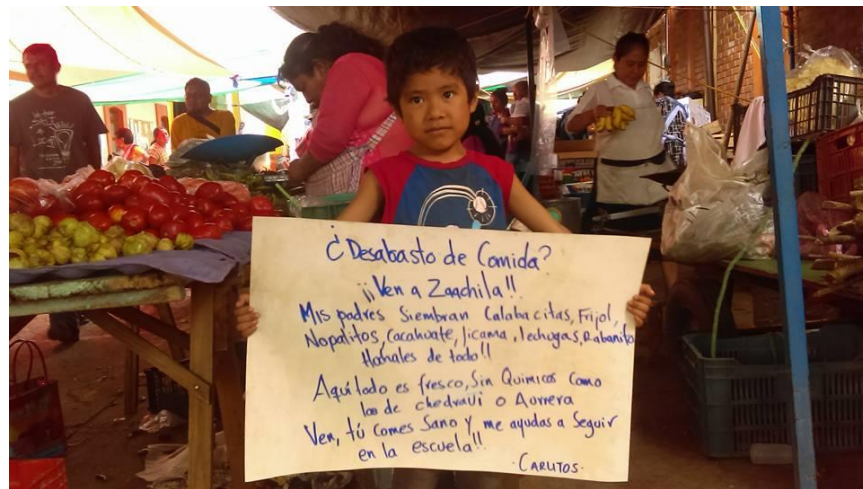 ¿Desabasto de Comida?
¡¡Ven a Zaachila!!
Mis padres Siembran Calabacitas, Frijol,
Nopalitos, Cacahuate, Jicama, lechugas, Rabanito
Hahales de todo!!
Aquí todo es fresco, Sin Quimicos Como
los de chedraui o Aurrera
Ven, tú comes Sano Y, me ayudas a Seguir
en la escuela!!
·CARLITOS·